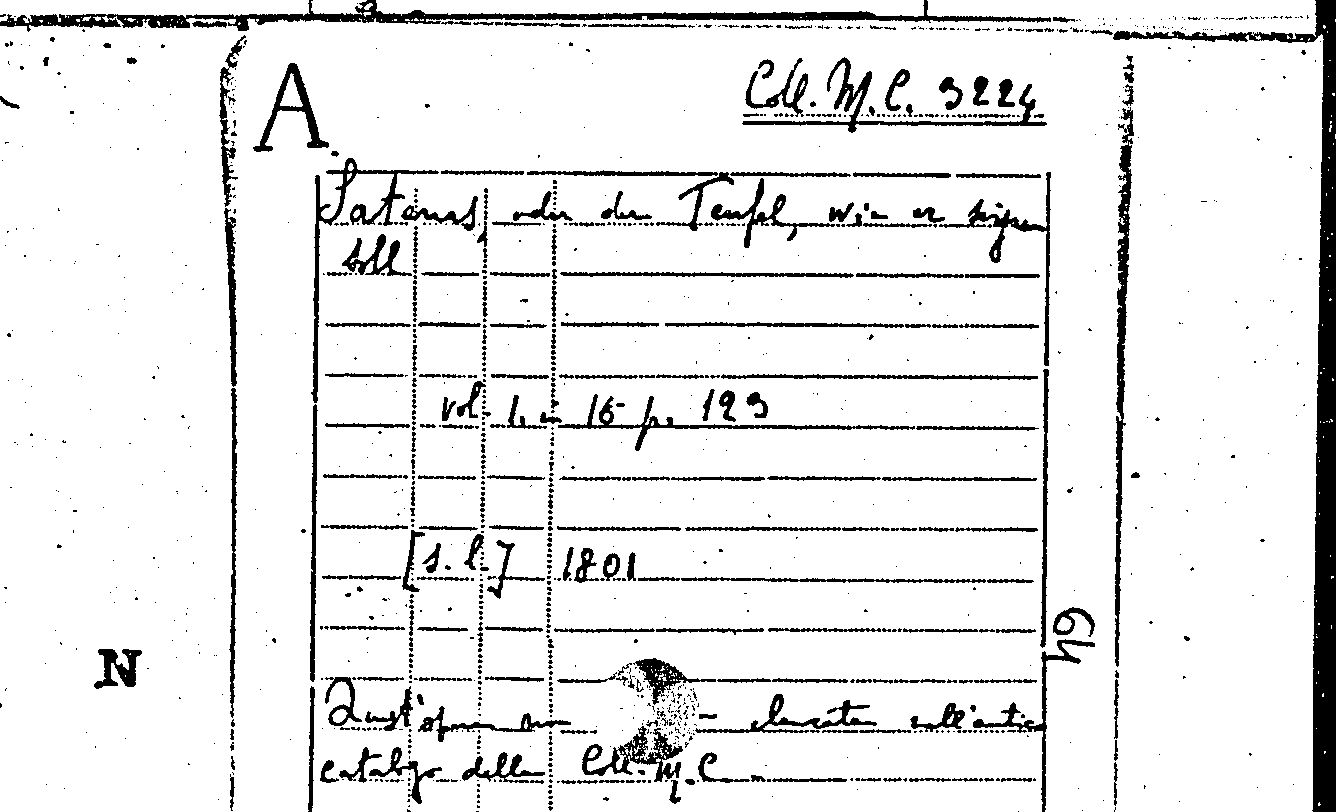 A.
Coll. M. C. 3224
Satanas, oder der Teufel, wie er singen
soll
vol. 1. in 16 p. 123
[s. l.] 1801
64
N
Quest'opera non elencata sull'antico
catalogo della Coll. M. C.